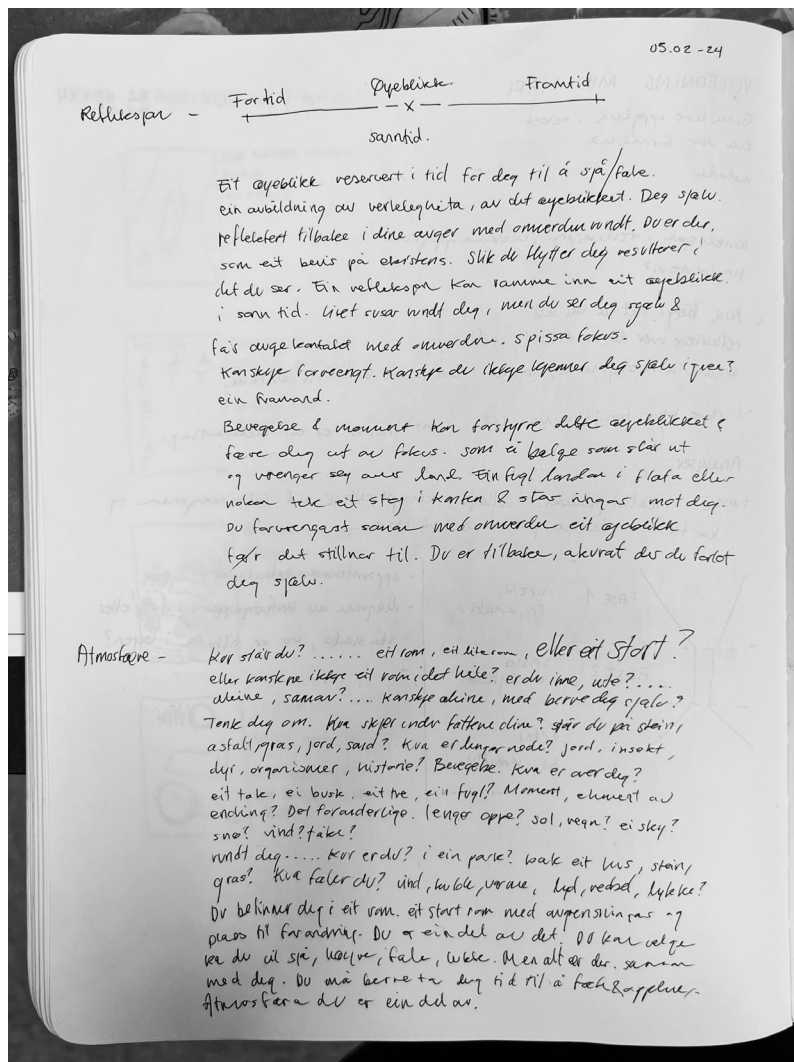 05.02-24
Fortid Øyeblikk Framtid
Refleksjon - - x -
sanntid.
Eit øyeblikk reservert i tid for deg til å sjå/føle.
ein avbildning av verkelegheita, av det øyeblikket. Deg sjølv.
reflektert tilbake i dine auger med omverdun rundt. Du er der,
som eit bevis på eksistens. Slik du flytter deg resulterer i
det du ser. Ein refleksjon kan ramme inn eit øyeblikk
i sann tid. Livet susar rundt deg, men du ser deg sjølv &
får augekontakt med omverdn. Spissa fokus.
Kanskje forvrengt. Kanskje du ikkje kjenner deg sjølv igjen?
ein framand.
Bevegelse & moment kan forstyrre dette øyeblikket &
føre deg ut av fokus. som ei bølge som slår ut
og vrenger seg over land. Ein fugl landar i flata eller
nokon tek eit steg i kanten & ringar mot deg.
Du forvrengast saman med omverdn eit øyeblikk
før det stillnar til. Du er tilbake, akurat der du forlot
deg sjølv.
Atmosfære - Kor står du? ...... eit rom, eit lite rom, eller eit stort?
eller kanskje ikkje eit rom i det heile? er du inne, ute? .....
aleine, saman? .... Kanskje aleine, med berre deg sjølv?
Tenk deg om. Kva skjer under føttene dine? står du på stein,
asfalt, gras, jord, sand? Kva er lenger nede? jord, insekt,
dyr, organismer, historie? Bevegelse. Kva er over deg?
eit tak, ei busk, eit tre, ein fugl? Moment, element av
endring? Det foranderlige. lenger oppe? sol, regn? ei sky?
snø? vind? tåke?
rundt deg ..... Kor er du? i ein park? bak eit hus, stein,
gras? Kva føler du? vind, kulde, varme, lyd, redsel, lykke?
Du befinner deg i eit rom. eit stort rom med avgrensningar og
plass til forandring. Du er ein del av det. Du kan velge
ka du vil sjå, høyre, føle, lukte. Men alt er der. saman
med deg. Du må berre ta deg tid til å &
Atmosfæra du er ein del av.